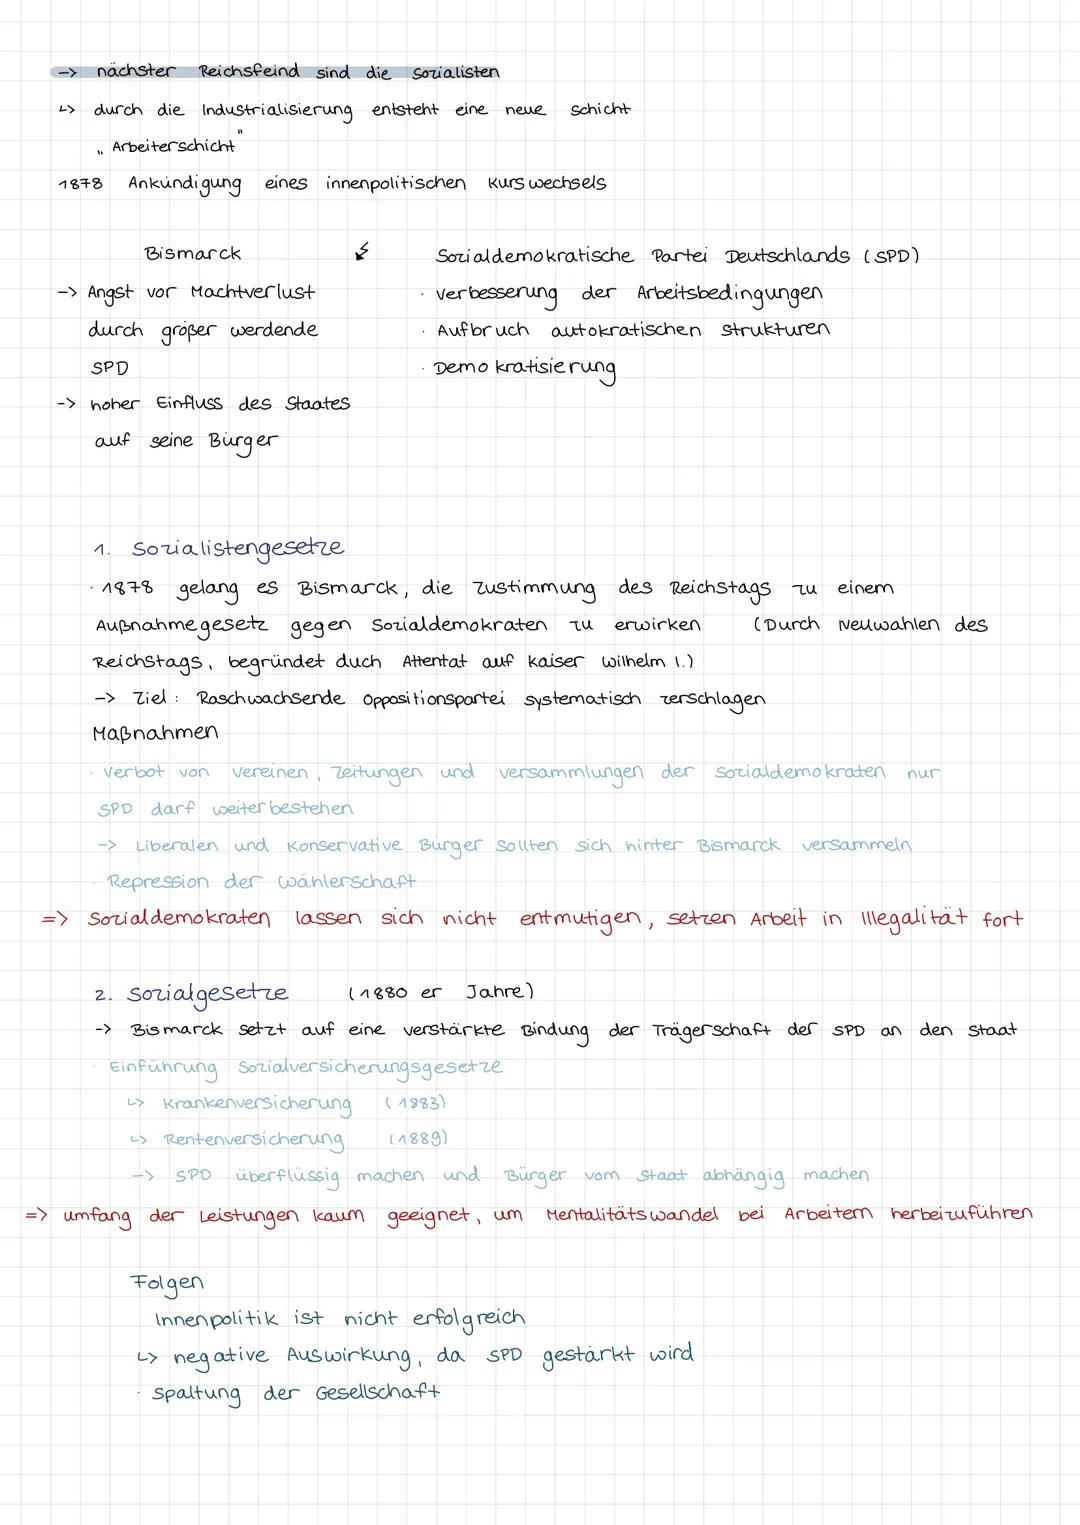 -> nächster Reichsfeind sind die Sozialisten
↳ durch die Industrialisierung entsteht eine neue Schicht
„Arbeiterschicht"
1878 Ankündigung eines innenpolitischen Kurswechsels
Bismarck ↯ Sozialdemokratische Partei Deutschlands (SPD)
-> Angst vor Machtverlust · Verbesserung der Arbeitsbedingungen
durch größer werdende · Aufbruch autokratischen Strukturen
SPD · Demokratisierung
-> hoher Einfluss des Staates
auf seine Bürger
1. Sozialistengesetze
· 1878 gelang es Bismarck, die Zustimmung des Reichstags zu einem
Außnahmegesetz gegen Sozialdemokraten zu erwirken (Durch Neuwahlen des
Reichstags, begründet duch Attentat auf Kaiser Wilhelm I.)
-> Ziel: Raschwachsende Oppositionspartei systematisch zerschlagen
Maßnahmen
· Verbot von Vereinen, Zeitungen und Versammlungen der Sozialdemokraten nur
SPD darf weiterbestehen
-> Liberalen und Konservative Bürger sollten sich hinter Bismarck versammeln
· Repression der Wählerschaft
=> Sozialdemokraten lassen sich nicht entmutigen, setzen Arbeit in Illegalität fort
2. Sozialgesetze (1880er Jahre)
-> Bismarck setzt auf eine verstärkte Bindung der Trägerschaft der SPD an den Staat
· Einführung Sozialversicherungsgesetze
↳ Krankenversicherung (1883)
↳ Rentenversicherung (1889)
-> SPD überflüssig machen und Bürger vom Staat abhängig machen
=> umfang der Leistungen kaum geeignet, um Mentalitätswandel bei Arbeitern herbeizuführen
Folgen
Innenpolitik ist nicht erfolgreich
↳ negative Auswirkung, da SPD gestärkt wird
· Spaltung der Gesellschaft